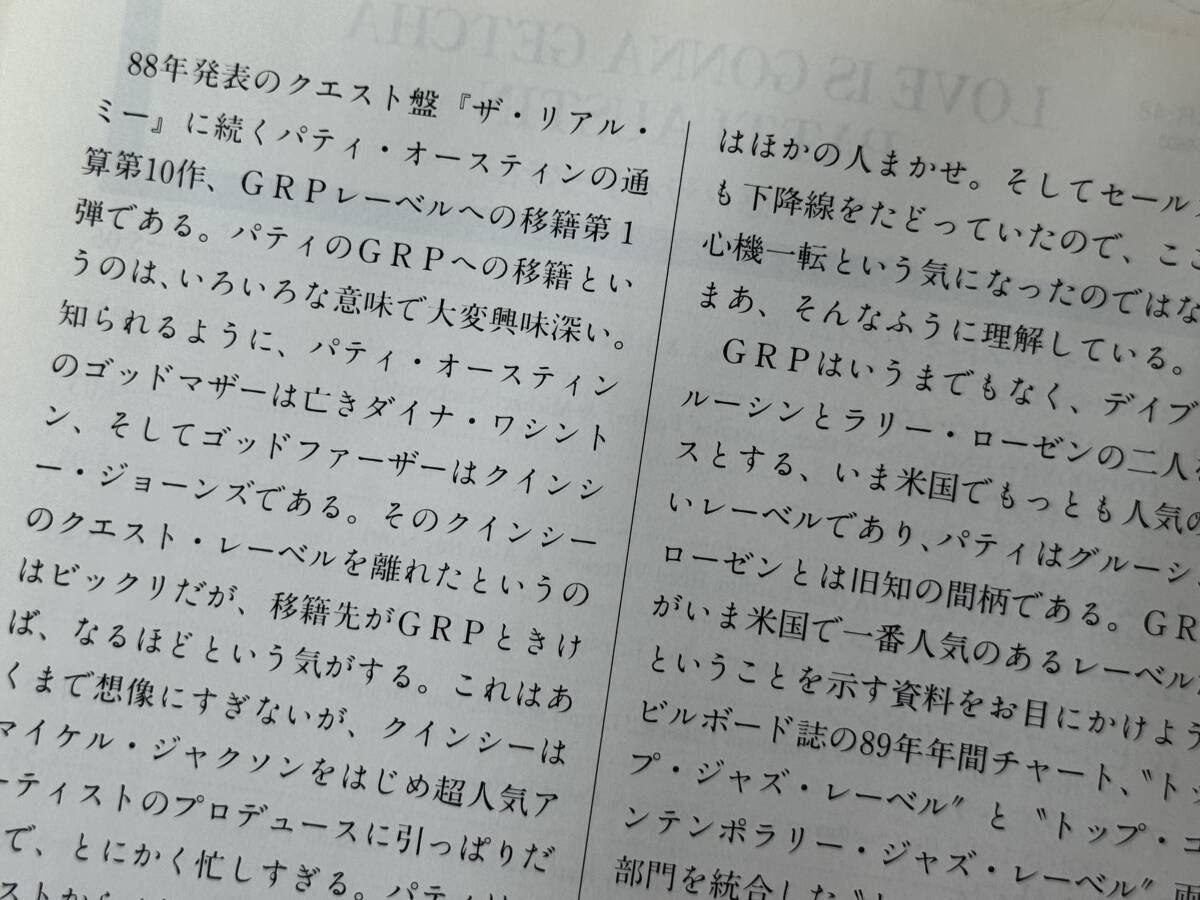 88年発表のクエスト盤『ザ・リアル・
ミー』に続くパティ・オースティンの通
算第10作、GRPレーベルへの移籍第1
弾である。パティのGRPへの移籍とい
うのは、いろいろな意味で大変興味深い。
知られるように、パティ・オースティン
のゴッドマザーは亡きダイナ・ワシント
ン、そしてゴッドファーザーはクインシ
ー・ジョーンズである。そのクインシー
のクエスト・レーベルを離れたというの
はビックリだが、移籍先がGRPときけ
ば、なるほどという気がする。これはあ
くまで想像にすぎないが、クインシーは
マイケル・ジャクソンをはじめ超人気ア
ーティストのプロデュースに引っぱりだ
で、とにかく忙しすぎる。パティは
ストから
はほかの人まかせ。そしてセール
も下降線をたどっていたので、ここ
心機一転という気になったのではな
まあ、そんなふうに理解している。
GRPはいうまでもなく、デイブ
ルーシンとラリー・ローゼンの二人
スとする、いま米国でもっとも人気の
いレーベルであり、パティはグルーシ
ローゼンとは旧知の間柄である。GR
がいま米国で一番人気のあるレーベル
ということを示す資料をお目にかけよう
ビルボード誌の89年年間チャート、〝トッ
プ・ジャズ・レーベル〟と〝トップ・コ
ンテンポラリー・ジャズ・レーベル〟両
部門を統合した
LOVE IS GONNA GETCHA
PATTI AUSTIN